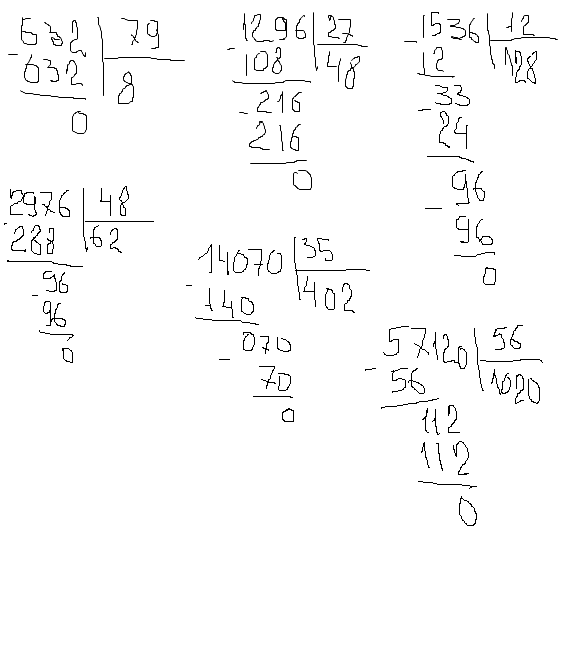 632 79
- 632 8
0
1296 27
- 108 48
- 216
216
0
1536 12
- 12 128
- 33
24
- 96
96
0
2976 48
- 288 62
- 96
96
0
14070 35
- 140 402
070
- 70
0
57120 56
- 56 1020
112
112
0